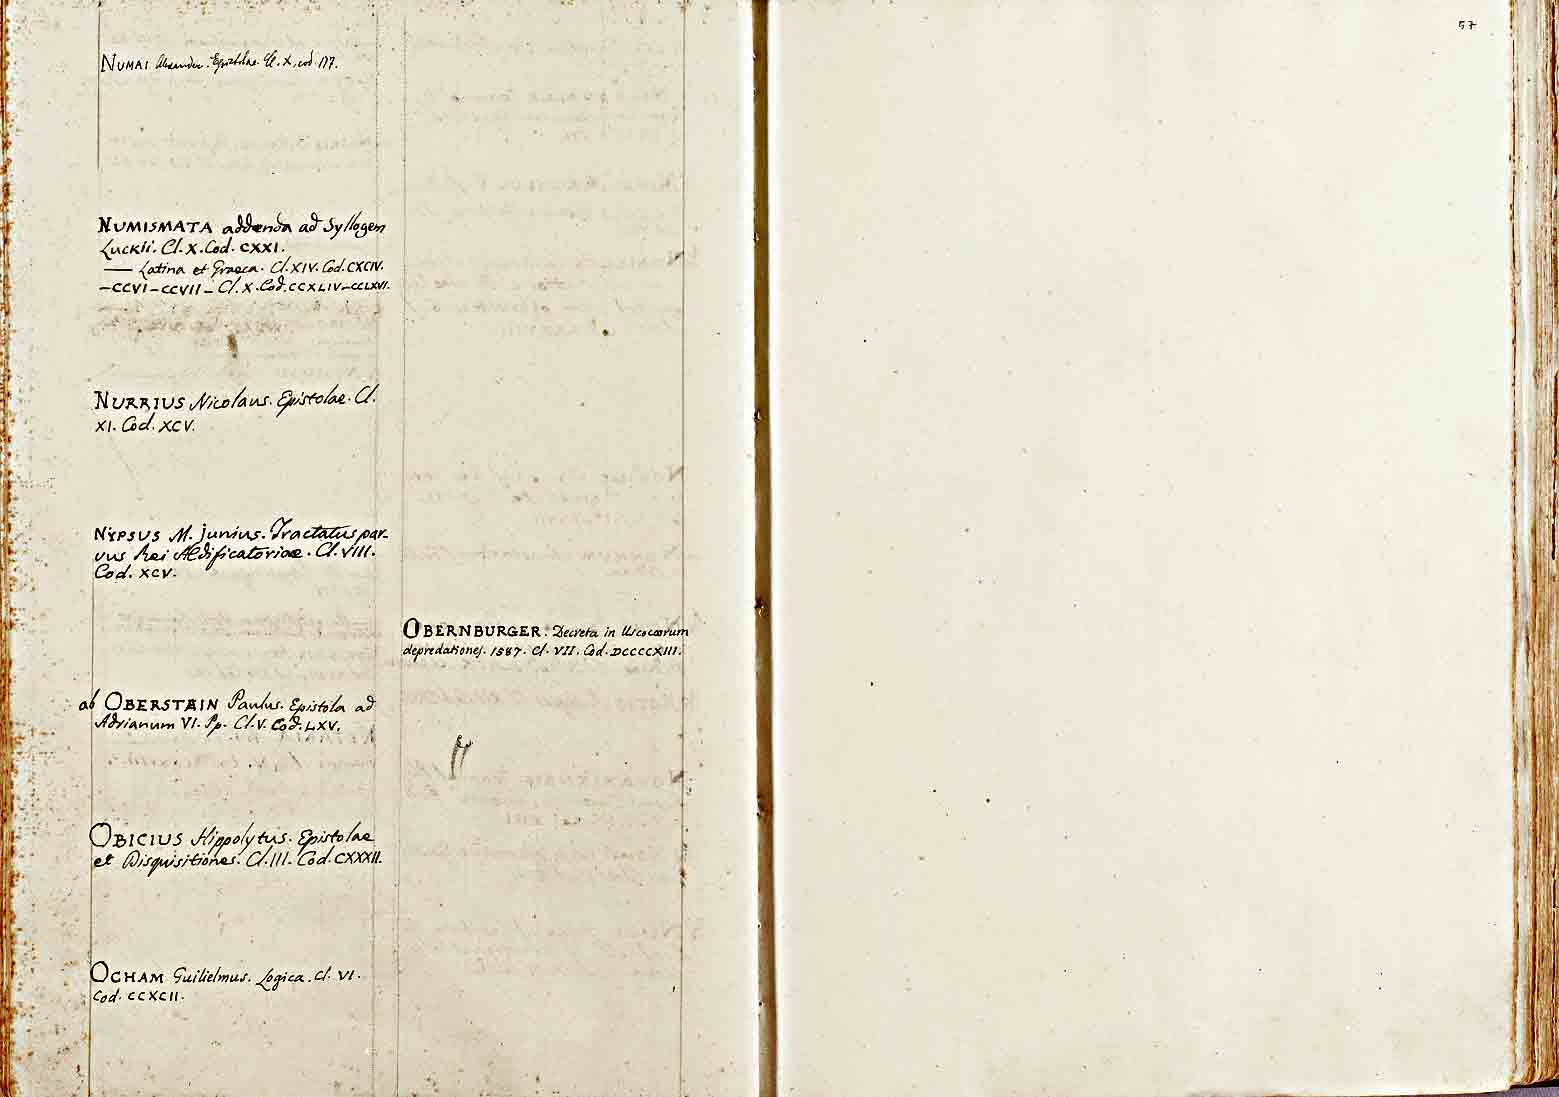 57
NUMAI Alexander. Epistolae. Cl. X. cod. 177.
NUMISMATA addenda ad Syllogen
Luckii. Cl. X. Cod. CXXI.
— Latina et Graeca. Cl. XIV. Cod. CXCIV.
—CCVI—CCVII— Cl. X. Cod. CCXLIV—CCLXVI.
NURRIUS Nicolaus. Epistolae. Cl.
XI. Cod. XCV.
NYPSUS M. Junius. Tractatus par-
vus Rei Aedificatoriae. Cl. VIII.
Cod. XCV.
ab OBERSTAIN Paulus. Epistola ad
Adrianum VI. Pp. Cl. V. Cod. LXV.
OBICIUS Hippolytus. Epistolae
et Disquisitiones. Cl. III. Cod. CXXXII.
OCHAM Guilielmus. Logica. Cl. VI.
Cod. CCXCII.
OBERNBURGER. Decreta in Uscocorum
depredationes. 1587. Cl. VII. Cod. DCCCCXIII.